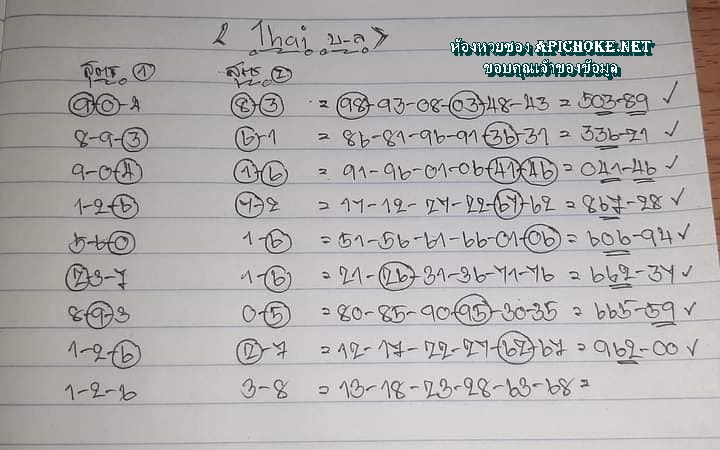 2 Thai บ-ล
ห้องหวยซอง APICHOKE.NET
ขอบคุณเจ้าของข้อมูล
สูตร ① สูตร ②
9-0-4 8-3 = 98-93-08-03-48-43 = 503-89 ✓
8-9-3 6-1 = 86-81-96-91-36-31 = 336-71 ✓
9-0-4 1-6 = 91-96-01-06-41-46 = 041-46 ✓
1-2-6 7-2 = 17-12-27-22-67-62 = 867-28 ✓
5-6-0 1-6 = 51-56-61-66-01-06 = 606-94 ✓
2-3-7 1-6 = 21-26-31-36-71-76 = 662-37 ✓
8-9-3 0-5 = 80-85-90-95-30-35 = 665-59 ✓
1-2-6 2-7 = 12-17-22-27-62-67 = 962-00 ✓
1-2-6 3-8 = 13-18-23-28-63-68 =